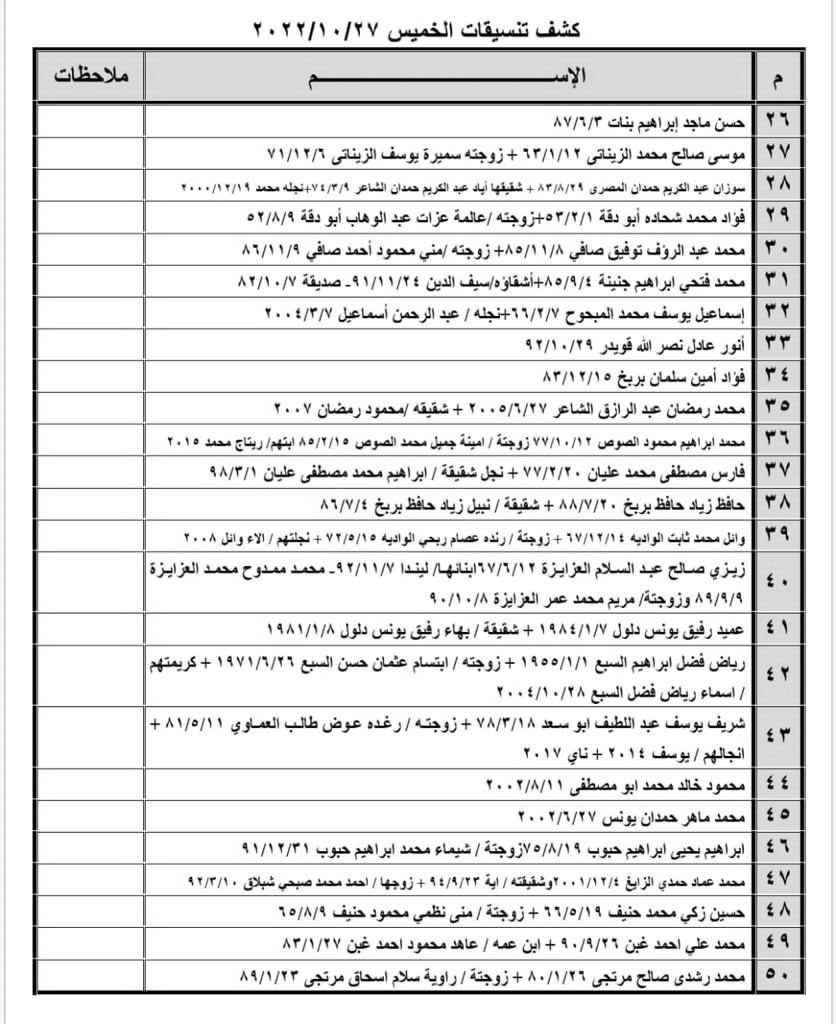 كشف تنسيقات الخميس ٢٠٢٢/١٠/٢٧
م الإســــــــــم ملاحظات
٢٦ حسن ماجد إبراهيم بنات ٨٧/٦/٣
٢٧ موسى صالح محمد الزيناتى ٦٣/١/١٢ + زوجته سميرة يوسف الزيناتى ٧١/١٢/٦
٢٨ سوزان عبد الكريم حمدان المصرى ٨٣/٨/٢٩ + شقيقها أياد عبد الكريم حمدان الشاعر ٧٤/٣/٩+نجله محمد ٢٠٠٠/١٢/١٩
٢٩ فؤاد محمد شحاده أبو دقة ٥٣/٢/١+زوجته /عالمة عزات عبد الوهاب أبو دقة ٥٢/٨/٩
٣٠ محمد عبد الرؤف توفيق صافي ٨٥/١١/٨+ زوجته /مني محمود أحمد صافي ٨٦/١١/٩
٣١ محمد فتحي ابراهيم جنينة ٨٥/٩/٤+أشقاؤه/سيف الدين ٩١/١١/٢٤- صديقة ٨٢/١٠/٧
٣٢ إسماعيل يوسف محمد المبحوح ٦٦/٢/٧+نجله / عبد الرحمن أسماعيل ٢٠٠٤/٣/٧
٣٣ أنور عادل نصر الله قويدر ٩٢/١٠/٢٩
٣٤ فؤاد أمين سلمان بربخ ٨٣/١٢/١٥
٣٥ محمد رمضان عبد الرازق الشاعر ٢٠٠٥/٦/٢٧ + شقيقه /محمود رمضان ٢٠٠٧
٣٦ محمد ابراهيم محمود الصوص ٧٧/١٠/١٢ زوجتة / امينة جميل محمد الصوص ٨٥/٢/١٥ ابتهم/ ريتاج محمد ٢٠١٥
٣٧ فارس مصطفى محمد عليان ٧٧/٢/٢٠ + نجل شقيقة / ابراهيم محمد مصطفى عليان ٩٨/٣/١
٣٨ حافظ زياد حافظ بربخ ٨٨/٧/٢٠ + شقيقة / نبيل زياد حافظ بربخ ٨٦/٧/٤
٣٩ وائل محمد ثابت الواديه ٦٧/١٢/١٤ + زوجتة / رنده عصام ربحي الواديه ٧٢/٥/١٥ + نجلتهم / الاء وائل ٢٠٠٨
٤٠ زيزي صالح عبد السلام العزايزة ٦٧/٦/١٢ابنائها/ ليندا ٩٢/١١/٧- محمد ممدوح محمد العزايزة
٨٩/٩/٩ وزوجتة/ مريم محمد عمر العزايزة ٩٠/١٠/٨
٤١ عميد رفيق يونس دلول ١٩٨٤/١/٧ + شقيقة / بهاء رفيق يونس دلول ١٩٨١/١/٨
٤٢ رياض فضل ابراهيم السبع ١٩٥٥/١/١ + زوجته / ابتسام عثمان حسن السبع ١٩٧١/٦/٢٦ + كريمتهم
/ اسماء رياض فضل السبع ٢٠٠٤/١٠/٢٨
٤٣ شريف يوسف عبد اللطيف ابو سعد ٧٨/٣/١٨ + زوجته / رغده عوض طالب العماوي ٨١/٥/١١ +
انجالهم / يوسف ٢٠١٤ + ناي ٢٠١٧
٤٤ محمود خالد محمد ابو مصطفى ٢٠٠٢/٨/١١
٤٥ محمد ماهر حمدان يونس ٢٠٠٢/٦/٢٧
٤٦ ابراهيم يحيى ابراهيم حبوب ٧٥/٨/١٩زوجتة / شيماء محمد ابراهيم حبوب ٩١/١٢/٣١
٤٧ محمد عماد حمدي الزايغ ٢٠٠١/١٢/٤وشقيقته / اية ٩٤/٩/٢٣ + زوجها / احمد محمد صبحي شبلاق ٩٢/٣/١٠
٤٨ حسين زكي محمد حنيف ٦٦/٥/١٩ + زوجتة / منى نظمي محمود حنيف ٦٥/٨/٩
٤٩ محمد علي احمد غبن ٩٠/٩/٢٦ + ابن عمه / عاهد محمود احمد غبن ٨٣/١/٢٧
٥٠ محمد رشدى صالح مرتجى ٨٠/١/٢٦ + زوجتة / راوية سلام اسحاق مرتجى ٨٩/١/٢٣